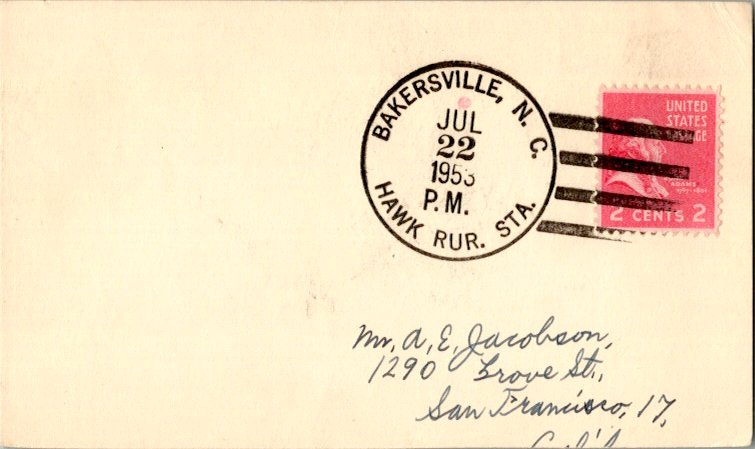 BAKERSVILLE, N. C.
JUL
22
1953
P.M.
HAWK RUR. STA.
UNITED
STATES
ADAMS
1797-1801
2 CENTS 2
Mr. A. E. Jacobson,
1290 Grove St.,
San Francisco, 17,